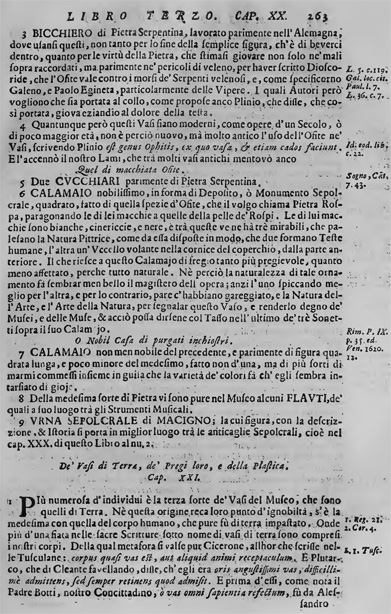 LIBRO TERZO. CAP. XX. 263
3 BICCHIERO di Pietra Serpentina, lavorato parimente nell'Alemagna,
dove usansi questi, non tanto per lo fine della semplice figura, ch'è di beverci
dentro, quanto per le virtù della Pietra, che stimasi giovare non solo ne' mali
sopra raccordati, ma parimente ne' pericoli di veleno, per haver scritto Dioscoride,
che l'Ofite vale contro i morsi de' Serpenti velenosi, e, come specificorno
Galeno, e Paolo Egineta, particolarmente delle Vipere. I quali Autori però
vogliono che sia portata al collo, come propose anco Plinio, che disse, che così
portata, giova eziandio al dolore della testa.
L. 5. c. 119.
Gal. loc. cit.
Paul. l. 7.
L. 36. c. 7.
4 Quantunque però questi Vasi siano moderni, come opere, d'un Secolo, ò
di poco maggior età, non è perciò nuovo, mà molto antico l'uso dell'Ofite ne'
Vasi, scrivendo Plinio est genus Ophitis, ex quo vasa, & etiam cados faciunt.
E l'accennò il nostro Lami, che trà molti vasi antichi mentovò anco
Id. eod. lib.
c. 22.
Quel di macchiata Ofite.
Sogno, Cāt.
7. 43.
5 Due CVCCHIARI parimente di Pietra Serpentina.
6 CALAMAIO nobilissimo, in forma di Deposito, ò Monumento Sepolcrale,
quadrato, fatto di quella spezie d'Ofite, che il volgo chiama Pietra Rospa,
paragonando le di lei macchie a quelle della pelle de' Rospi. Le di lui macchie
sono bianche, cinericcie, e nere, e trà queste ve ne hà trè mirabili, che palesano
la Natura Pittrice, come da essa disposte in modo, che due formano Teste
humane, l'altra un' Vccello volante nella cornice del coperchio, dalla parte anteriore.
Il che riesce a questo Calamajo di fregio tanto più pregievole, quanto
meno affettato, perche tutto naturale. Nè perciò la naturalezza di tale ornamento
fà sembrar men bello il magistero dell'opera; anzi l'uno spiccando meglio
per l'altra, e per lo contrario, pare c'habbiano gareggiato, e la Natura dell'Arte,
e l'Arte della Natura, per segnalar questo Vaso, e renderlo degno de'
Musei, e delle Muse, & acciò possa dirsene col Tasso nell'ultimo de' trè Sonetti
sopra il suo Calamajo.
Rim. P. IX.
p. 35. ed.
Ven. 1620.
12.
O Nobil Casa di purgati inchiostri.
7 CALAMAIO non men nobile del precedente, e parimente di figura quadrata
lunga, e poco minore del medesimo, fatto non d'una, ma di più sorti di
marmi commessi insieme in guisa che la varietà de' colori fà ch'egli sembra intarsiato
di gioje.
8 Della medesima sorte di Pietra vi sono pure nel Museo alcuni FLAVTI, de'
quali a suo luogo trà gli Strumenti Musicali.
9 VRNA SEPOLCRALE DI MACIGNO; la cui figura, con la descrizzione,
& Istoria si porta in miglior luogo trà le anticaglie Sepolcrali, cioè nel
cap. XXX. di questo Libro al nu. 2.
De' Vasi di Terra, de' Pregi loro, e della Plastica.
Cap. XXI.
1 PIù numerosa d'individui è la terza sorte de' Vasi del Museo, che sono
quelli di Terra. Nè questa origine reca loro punto d'ignobiltà, s'è la
medesima con quella del corpo humano, che pure fù di terra impastato. Onde
più d'una fiata nelle sacre Scritture sotto nome di vasi di terra sono compresi
i nostri corpi. Della qual metafora si valse pur Cicerone, allhor che scrisse nelle
Tusculane: corpus quasi vas est, aut aliquid animi receptaculum. E Plutarco,
che di Cleante favellando, disse, ch'egli era oris angustissimi vas, difficillime
admittens, sed semper retinens quod admisit. E prima d'essi, come nota il
Padre Botti, nostro Concittadino, ò vas omni sapientia refectum, fù da Alessandro
1. Reg. 21.
2. Cor. 4.
L. 1. Tusc.